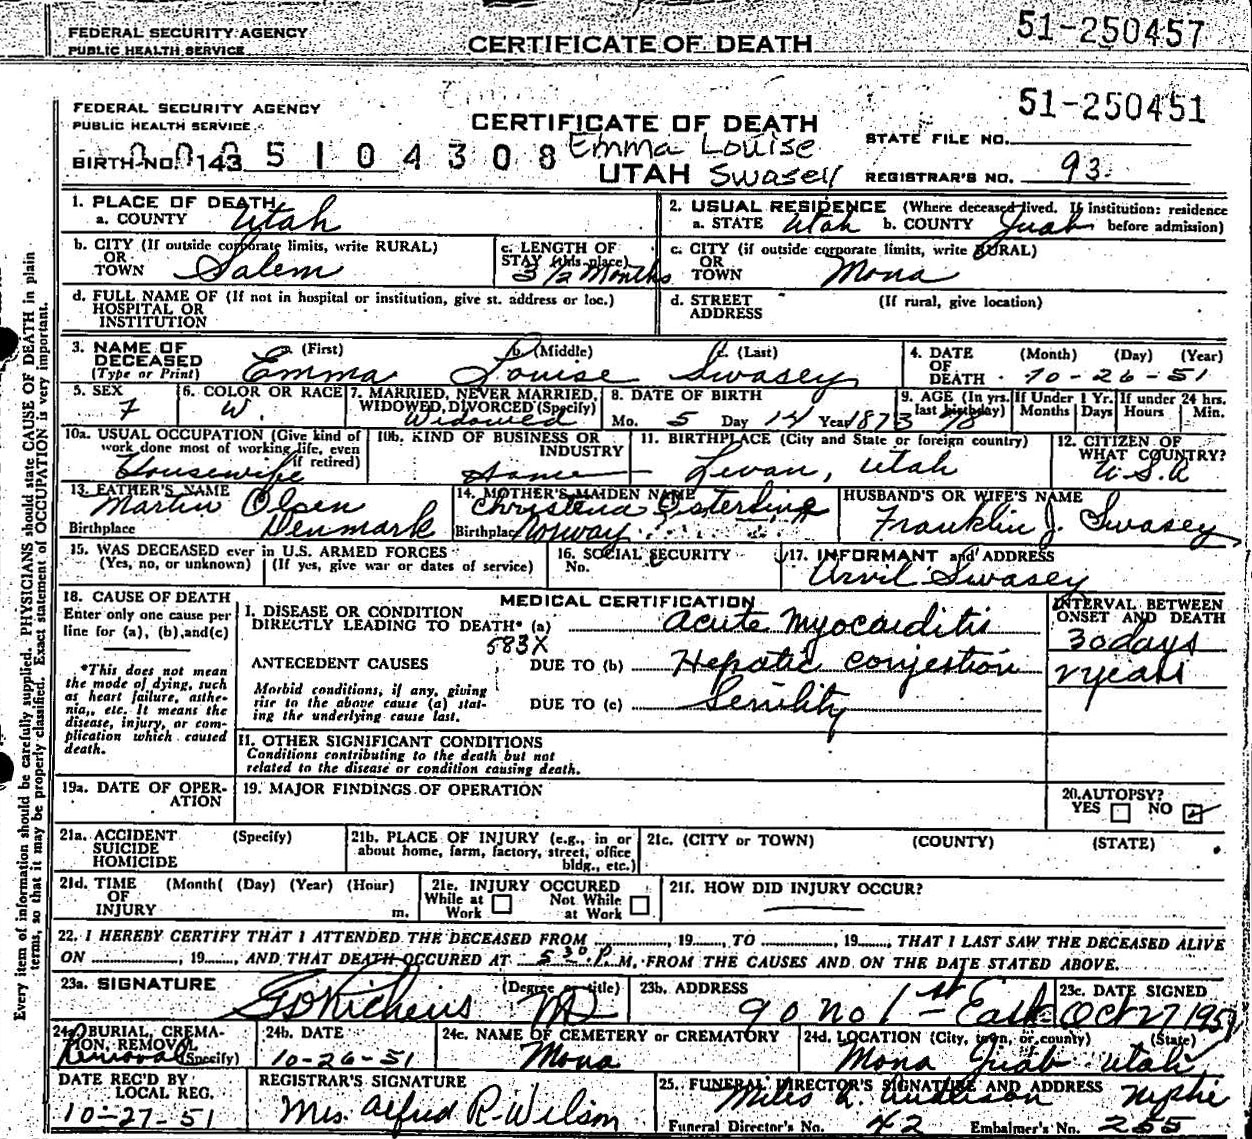 FEDERAL SECURITY AGENCY
PUBLIC HEALTH SERVICE
CERTIFICATE OF DEATH
51-250457
FEDERAL SECURITY AGENCY
PUBLIC HEALTH SERVICE
CERTIFICATE OF DEATH
51-250451
STATE FILE NO.
BIRTH NO. 143 5104308
Emma Louise
UTAH Swasey
REGISTRAR'S NO. 93
1. PLACE OF DEATH
a. COUNTY Utah
2. USUAL RESIDENCE (Where deceased lived. If institution: residence before admission)
a. STATE Utah b. COUNTY Juab
b. CITY (If outside corporate limits, write RURAL)
OR
TOWN Salem
c. LENGTH OF
STAY (this place)
3 1/2 Months
c. CITY (if outside corporate limits, write RURAL)
OR
TOWN Mona
d. FULL NAME OF (If not in hospital or institution, give st. address or loc.)
HOSPITAL OR
INSTITUTION
d. STREET
ADDRESS
(If rural, give location)
3. NAME OF
DECEASED
(Type or Print)
a. (First) b. (Middle) c. (Last)
Emma Louise Swasey
4. DATE
OF
DEATH
(Month) (Day) (Year)
10-26-51
5. SEX
F
6. COLOR OR RACE
W.
7. MARRIED, NEVER MARRIED,
WIDOWED, DIVORCED (Specify)
Widowed
8. DATE OF BIRTH
Mo. 5 Day 14 Year 1873
9. AGE (In yrs. last birthday)
78
If Under 1 Yr.
Months Days
If under 24 hrs.
Hours Min.
10a. USUAL OCCUPATION (Give kind of
work done most of working life, even
if retired)
Housewife
10b. KIND OF BUSINESS OR
INDUSTRY
Home
11. BIRTHPLACE (City and State or foreign country)
Levan, Utah
12. CITIZEN OF
WHAT COUNTRY?
U.S.A
13. FATHER'S NAME
Martin Olsen
Birthplace Denmark
14. MOTHER'S MAIDEN NAME
Christena
Birthplace Norway
HUSBAND'S OR WIFE'S NAME
Franklin J. Swasey
15. WAS DECEASED ever in U.S. ARMED FORCES
(Yes, no, or unknown) (If yes, give war or dates of service)
16. SOCIAL SECURITY
No.
17. INFORMANT and ADDRESS
Arvil Swasey
18. CAUSE OF DEATH
Enter only one cause per
line for (a), (b), and (c)
*This does not mean
the mode of dying, such
as heart failure, asthe-
nia, etc. It means the
disease, injury, or com-
plication which caused
death.
MEDICAL CERTIFICATION
I. DISEASE OR CONDITION
DIRECTLY LEADING TO DEATH* (a) Acute Myocarditis
583X
ANTECEDENT CAUSES DUE TO (b) Hepatic congestion
Morbid conditions, if any, giving
rise to the above cause (a) stat-
ing the underlying cause last.
DUE TO (c) Senility
INTERVAL BETWEEN
ONSET AND DEATH
30 days
2 years
II. OTHER SIGNIFICANT CONDITIONS
Conditions contributing to the death but not
related to the disease or condition causing death.
19a. DATE OF OPER-
ATION
19. MAJOR FINDINGS OF OPERATION
20. AUTOPSY?
YES NO
21a. ACCIDENT
SUICIDE
HOMICIDE
(Specify)
21b. PLACE OF INJURY (e.g., in or
about home, farm, factory, street, office
bldg., etc.)
21c. (CITY or TOWN) (COUNTY) (STATE)
21d. TIME
OF
INJURY
(Month( (Day) (Year) (Hour)
m.
21e. INJURY OCCURED
While at Work
Not While at Work
21f. HOW DID INJURY OCCUR?
22. I HEREBY CERTIFY THAT I ATTENDED THE DECEASED FROM ........, 19...., TO ........, 19...., THAT I LAST SAW THE DECEASED ALIVE
ON ........, 19...., AND THAT DEATH OCCURED AT 530 P. M, FROM THE CAUSES AND ON THE DATE STATED ABOVE.
23a. SIGNATURE
(Degree or title)
MD
23b. ADDRESS
90 no 1st East
23c. DATE SIGNED
Oct 27 1951
24a. BURIAL, CREMA-
TION, REMOVAL
(Specify)
Removal
24b. DATE
10-26-51
24c. NAME OF CEMETERY or CREMATORY
Mona
24d. LOCATION (City, town, or county) (State)
Mona Juab Utah
DATE REC'D BY
LOCAL REG.
10-27-51
REGISTRAR'S SIGNATURE
Mrs. Alfred R. Wilson
25. FUNERAL DIRECTOR'S SIGNATURE AND ADDRESS
Miles L. Nephi
Funeral Director's No. 42 Embalmer's No. 255
Every item of information should be carefully supplied. PHYSICIANS should state CAUSE OF DEATH in plain
terms, so that it may be properly classified. Exact statement of OCCUPATION is very important.